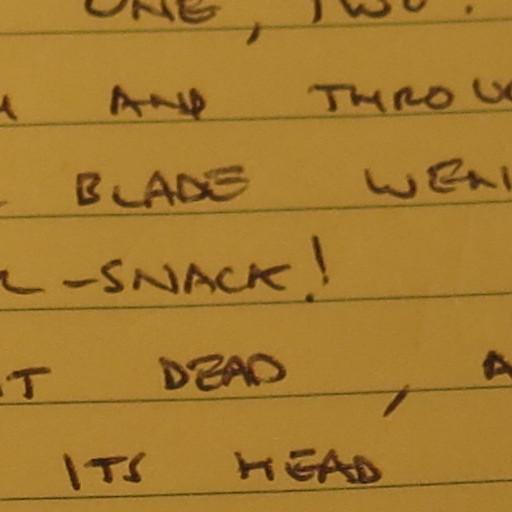 ONE, TWO!
AND THROU
BLADE WEN
-SNACK!
T DEAD, A
ITS HEAD